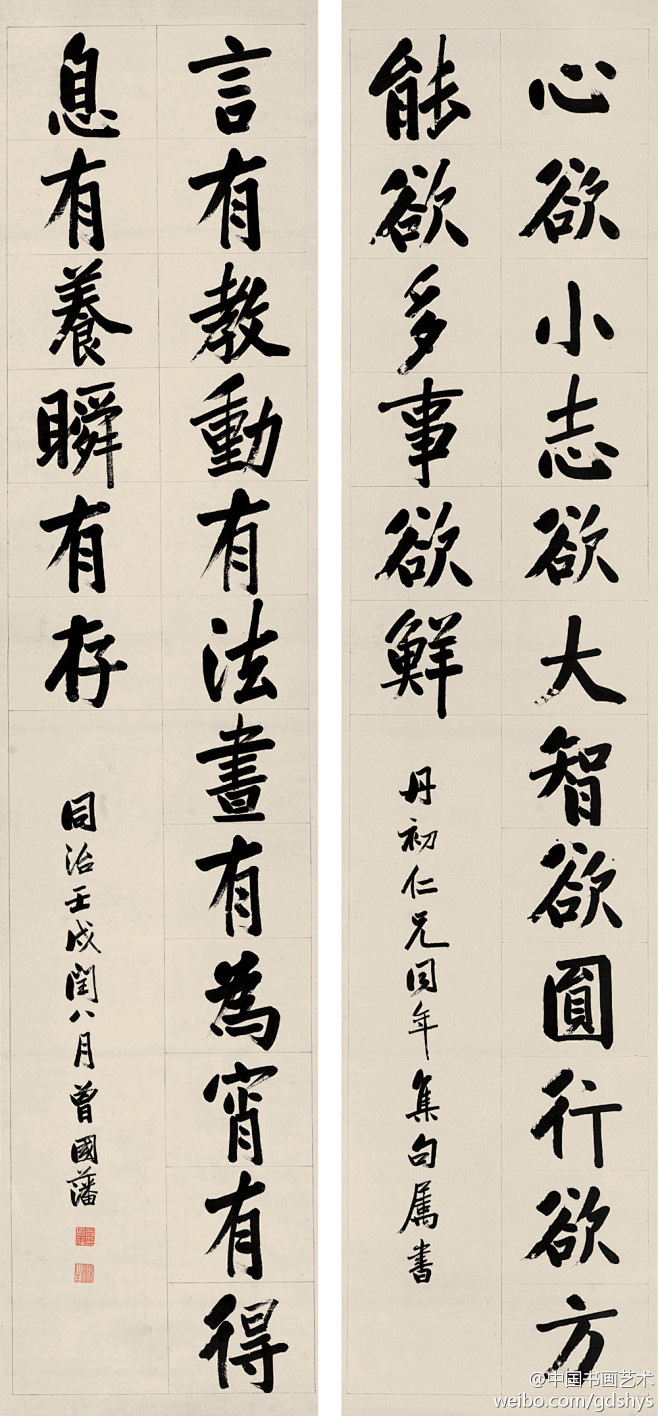 心欲小志欲大智欲圓行欲方
能欲多事欲鮮
丹初仁兄同年集句屬書
言有教動有法晝有為宵有得
息有養瞬有存
同治壬戌閏八月曾國藩
@中国书画艺术
weibo.com/gdshys